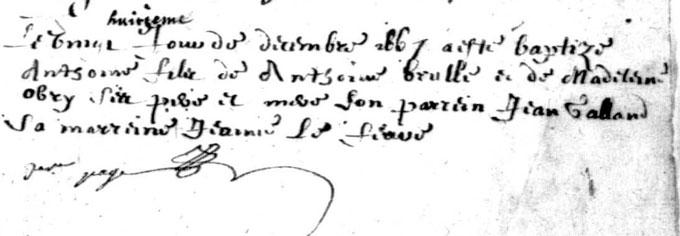 huitzieme
Jour de decembre 1667 a esté baptize
Anthoine filz de Anthoine brulle et de Madelene
obry ses pere et mere son parrein Jean Galland
Sa marreine Jeanne Le feave
page